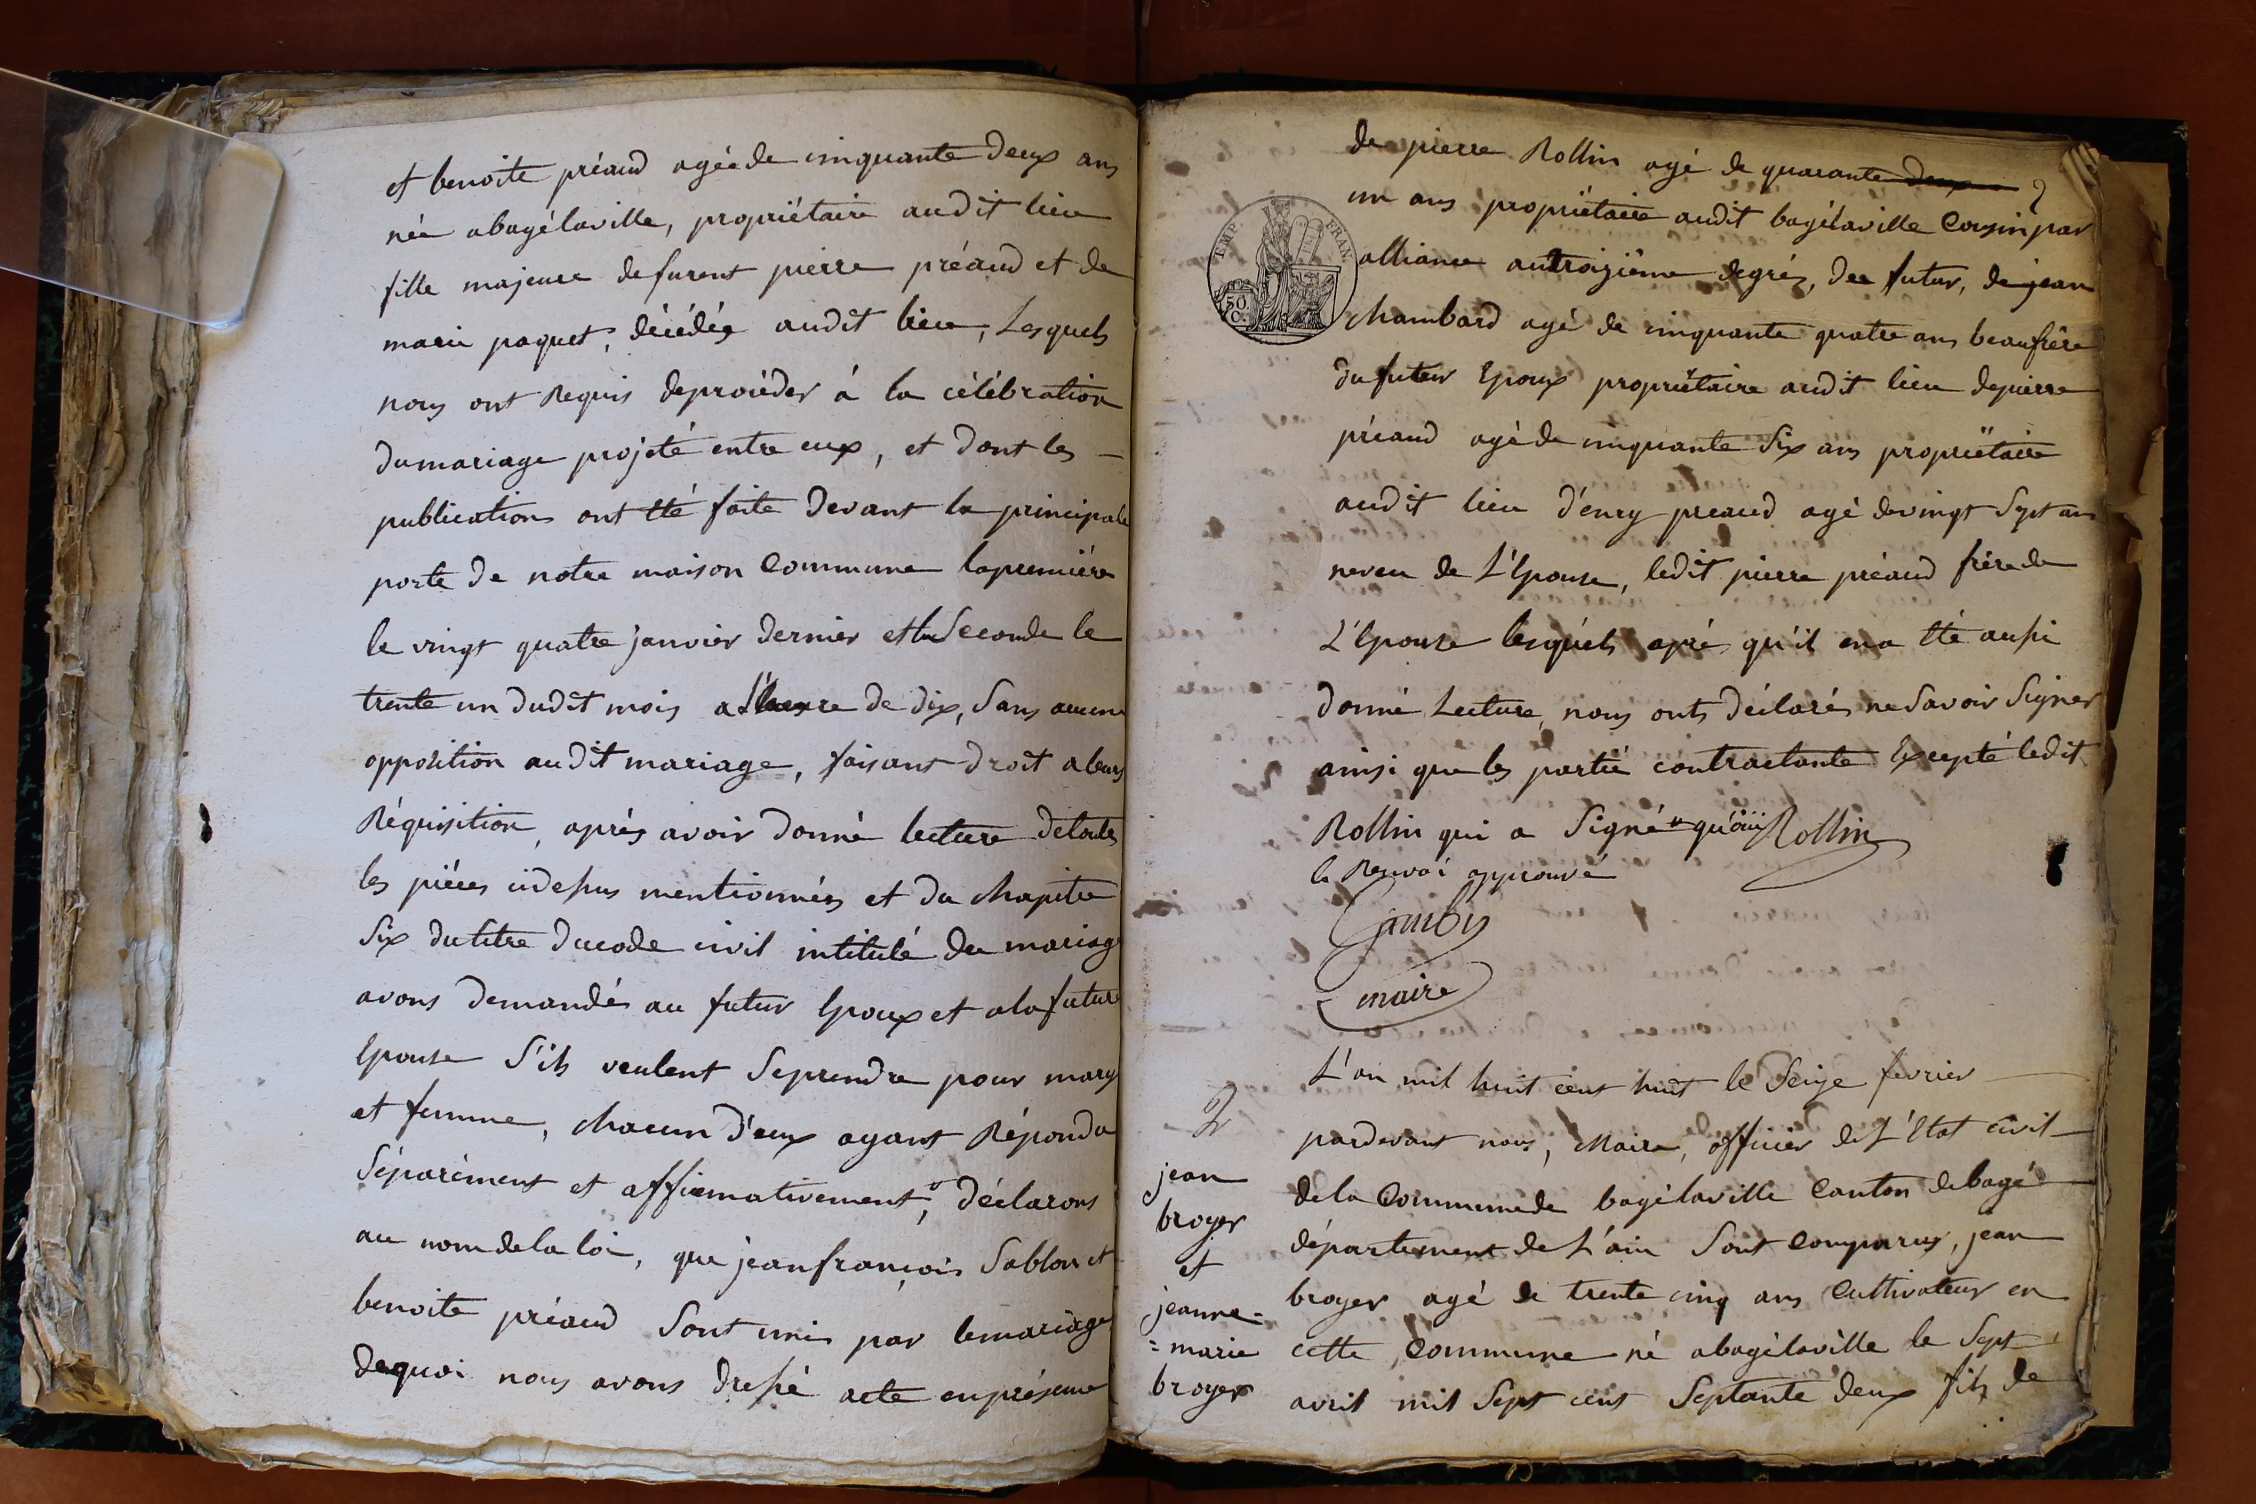 et benoite préaud agée de cinquante deux ans
née abagélaville, propriétaire audit lieu
fille majeure defurent pierre préaud et de
marie paquet, décédés audit lieu, Lesquels
nous ont Requis deprocéder à la célébration
dumariage projeté entre eux, et dont les –
publications ont été faite devant la principale
porte de notre maison Commune lapremière
le vingt quatre janvier dernier et la Seconde le
trente un dudit mois a L'heure de dix, Sans aucune
opposition audit mariage, faisant droit aleurs
Réquisition, après avoir donné lecture detoutes
les pièces cidessus mentionnées et du chapitre
Six dutitre ducode civil intitulé du mariage
avons demandé au futur Epoux et alafuture
Epouse S'ils veulent Seprendre pour mary
et femme, chacun d'eux ayant Répondu
Séparément et affirmativement, déclarons
au nom dela loi, que jeanfrançois Sablon et
benoite préaud Sont unis par lemariage
dequoi nous avons dressé acte enprésence
de pierre Rollin agé de quarante deux
un ans propriétaire audit bagélaville Cousin par
alliance autroizième degrés, du futur, de jean
chambard agé de cinquante quatre ans beaufrère
dufutur Epoux propriétaire audit lieu depierre
préaud agé de cinquante Six ans propriétaire
audit lieu d'énry preaud agé devingt Sept ans
neveu de L'Epouse, ledit pierre préaud frère de
L'Epouse lesquels aprés qu'il en a été aussi
donné Lecture, nous onts déclarés ne Savoir Signer
ainsi que les partie contractante Excepté ledit
Rollin qui a Signé Rollin
le Renvoi approuvé
maire
TIMP. FRAN.
50 C.
L'an mil huit cent huit le Seize fevrier
pardevant nous, Maire, officier de L'Etat civil
dela Commune de bagélaville Canton debagé
département de L'ain Sont Comparus, jean
broyer agé de trente cinq ans Cultivateur en
cette Commune né abagélaville le Sept
avril mil Sept cent Septante deux fils de
jean
broyer
et
jeanne=
=marie
broyer